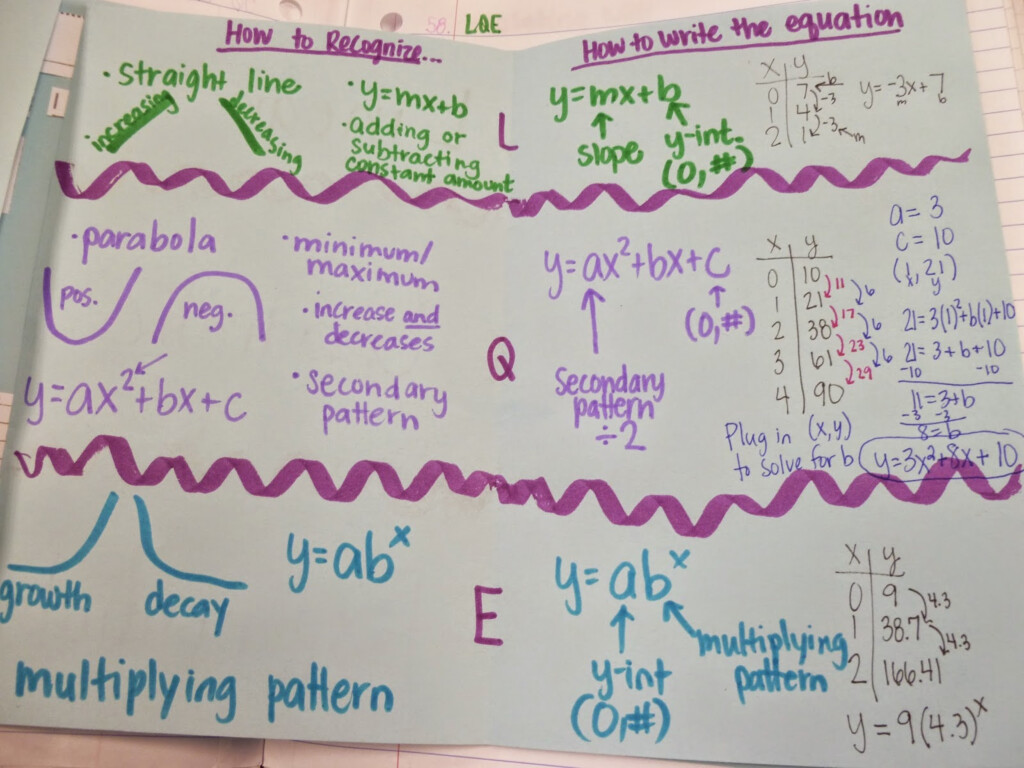 58. LQE
How to Recognize...
• straight line
increasing
decreasing
• y=mx+b
• adding or
subtracting
constant amount
L
How to write the equation
y=mx+b
slope
y-int.
(0,#)
x | y
0 | 7 ←b
1 | 4 -3
2 | 1 -3 ←m
y=-3x+7
m b
• parabola
pos.
neg.
y=ax²+bx+c
• minimum/
maximum
• increase and
decreases
• secondary
pattern
Q
y=ax²+bx+c
(0,#)
secondary
pattern
÷2
x | y
0 | 10
1 | 21
2 | 38
3 | 61
4 | 90
11
17
23
29
6
6
6
a=3
c=10
(1, 21)
x y
21=3(1)²+b(1)+10
21=3+b+10
-10 -10
11=3+b
-3 -3
8=b
Plug in (x,y)
to solve for b
y=3x²+8x+10
growth
decay
y=abˣ
multiplying pattern
E
y=abˣ
y-int
(0,#)
multiplying
pattern
x | y
0 | 9
1 | 38.7
2 | 166.41
4.3
4.3
y=9(4.3)ˣ